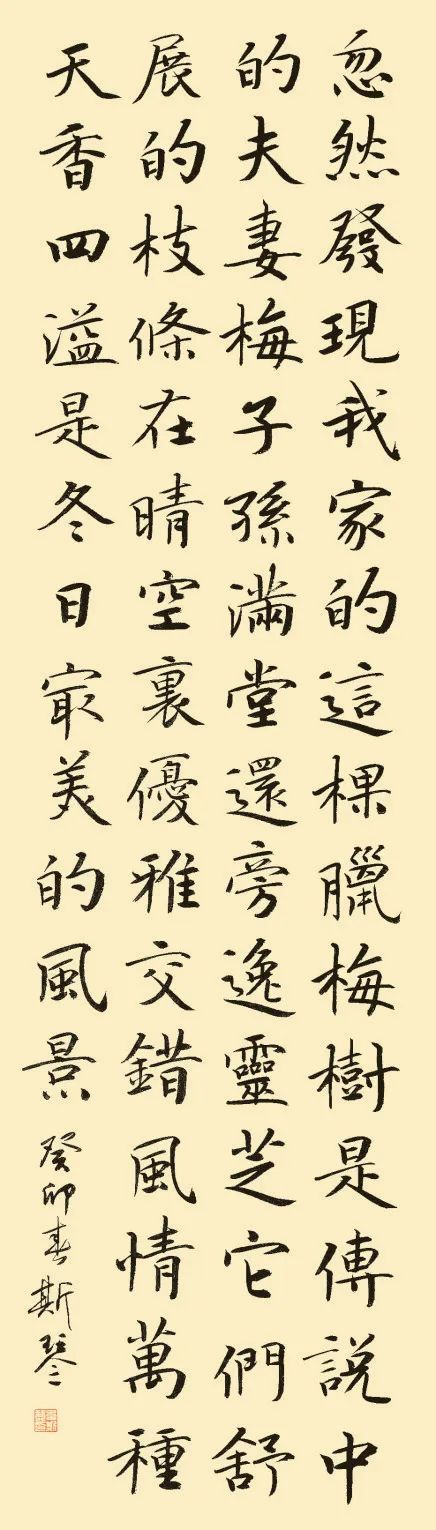 忽然發現我家的這棵臘梅樹是傳說中
的夫妻梅子孫滿堂還旁逸靈芝它們舒
展的枝條在晴空裏優雅交錯風情萬種
天香四溢是冬日最美的風景
癸卯春斯琴